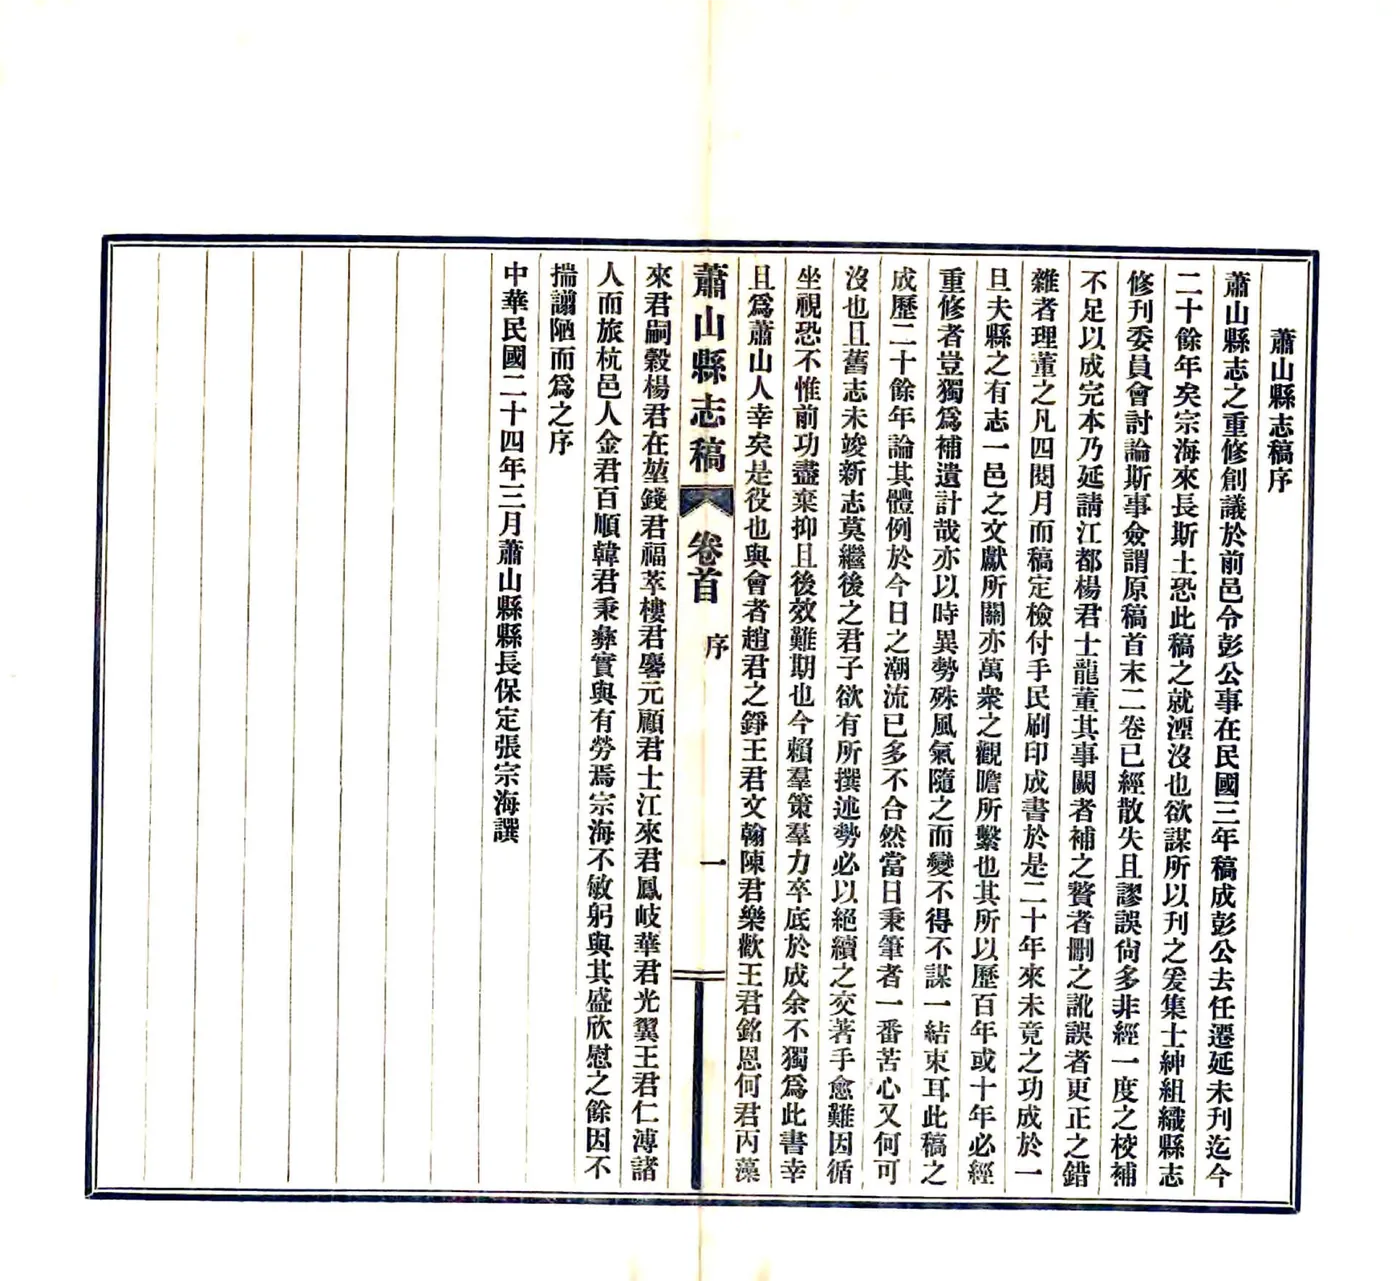 蕭山縣志稿序
蕭山縣志之重修創議於前邑令彭公事在民國三年稿成彭公去任遷延未刊迄今
二十餘年矣宗海來長斯土恐此稿之就湮沒也欲謀所以刊之爰集士紳組織縣志
修刊委員會討論斯事僉謂原稿首末二卷已經散失且謬誤尙多非經一度之校補
不足以成完本乃延請江都楊君士龍董其事闕者補之贅者刪之訛誤者更正之錯
雜者理董之凡四閱月而稿定檢付手民刷印成書於是二十年來未竟之功成於一
旦夫縣之有志一邑之文獻所關亦萬衆之觀瞻所繫也其所以歷百年或十年必經
重修者豈獨爲補遺計哉亦以時異勢殊風氣隨之而變不得不謀一結束耳此稿之
成歷二十餘年論其體例於今日之潮流已多不合然當日秉筆者一番苦心又何可
沒也且舊志未竣新志莫繼後之君子欲有所撰述勢必以絕續之交著手愈難因循
坐視恐不惟前功盡棄抑且後效難期也今賴羣策羣力卒底於成余不獨爲此書幸
且爲蕭山人幸矣是役也與會者趙君之錚王君文翰陳君樂歡王君銘恩何君丙藻
蕭山縣志稿 卷首 序 一
來君嗣穀楊君在堃錢君福萃樓君黁元顧君士江來君鳳岐華君光翼王君仁溥諸
人而旅杭邑人金君百順韓君秉彝實與有勞焉宗海不敏躬與其盛欣慰之餘因不
揣譾陋而爲之序
中華民國二十四年三月蕭山縣縣長保定張宗海譔